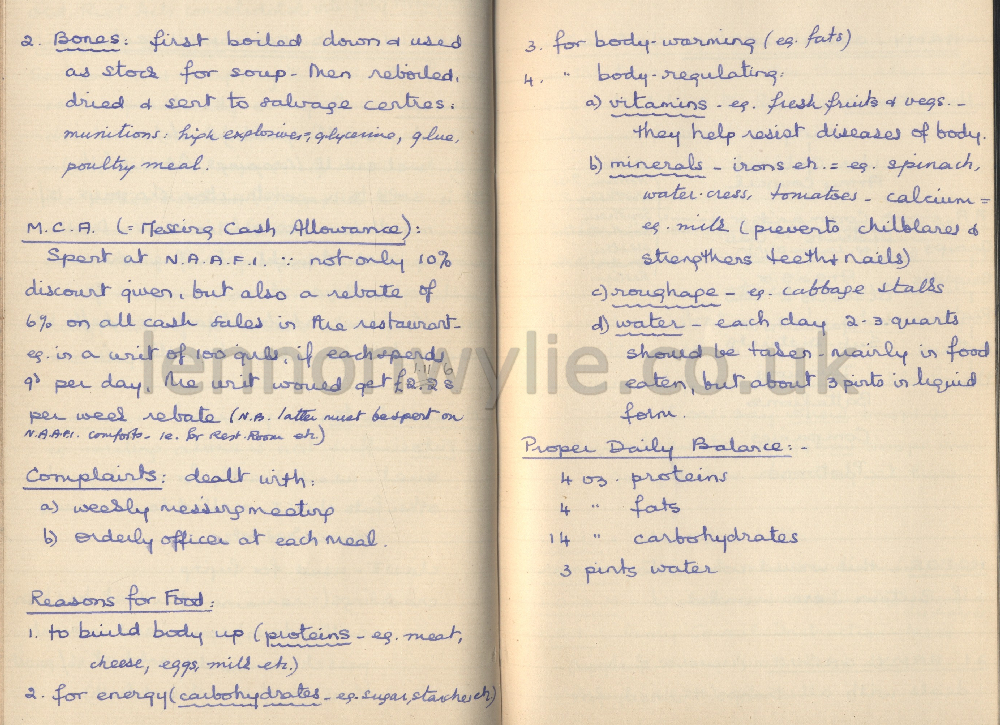 2. Bones: first boiled down & used
as stock for soup - then reboiled,
dried & sent to salvage centres:
munitions: high explosives, glycerine, glue,
poultry meal.
M.C.A. (= Messing Cash Allowance):
Spent at N.A.A.F.I. ∵ not only 10%
discount given, but also a rebate of
6% on all cash sales in the restaurant -
eg. in a unit of 100 girls, if each spends
9d per day, the unit would get £
per week rebate (N.B. latter must be spent on
N.A.A.F.I. comforts - ie. for Rest Room etc.)
Complaints: dealt with:
a) weekly messing meeting
b) orderly officer at each meal.
Reasons for Food:
1. to build body up (proteins - eg. meat,
cheese, eggs, milk etc.)
2. for energy (carbohydrates - eg. sugar, starches etc)
3. for body-warming (eg. fats)
4. " body-regulating:
a) vitamins - eg. fresh fruits & vegs. -
they help resist diseases of body.
b) minerals - irons etc. = eg. spinach,
water-cress, tomatoes - calcium =
eg. milk (prevents chilblanes &
strengthens teeth & nails)
c) roughage - eg. cabbage stalks
d) water - each day 2-3 quarts
should be taken - mainly in food
eaten, but about 3 pints in liquid
form.
Proper Daily Balance: -
4 oz. proteins
4 " fats
14 " carbohydrates
3 pints water
lennonwylie.co.uk